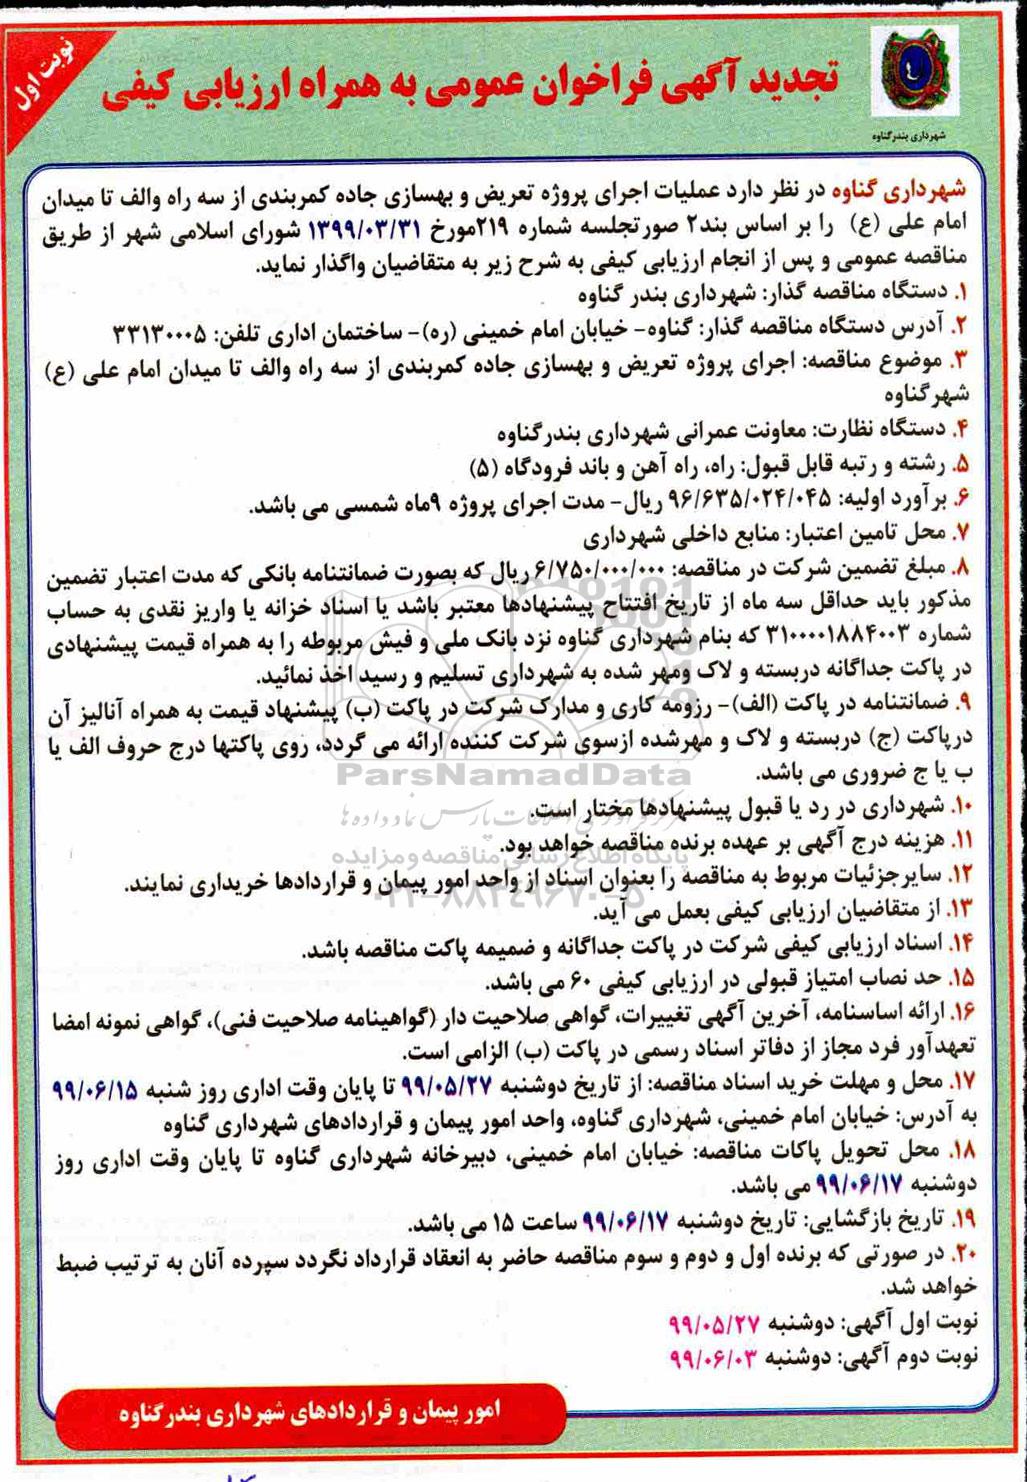 نوبت اول
تجدید آگهی فراخوان عمومی به همراه ارزیابی کیفی
شهرداری بندر گناوه
شهرداری گناوه در نظر دارد عملیات اجرای پروژه تعریض و بهسازی جاده کمربندی از سه راه والف تا میدان
امام علی (ع) را بر اساس بند۲ صورتجلسه شماره ۲۱۹مورخ ۱۳۹۹/۰۳/۳۱ شورای اسلامی شهر از طریق
مناقصه عمومی و پس از انجام ارزیابی کیفی به شرح زیر به متقاضیان واگذار نماید.
۱. دستگاه مناقصه گذار: شهرداری بندر گناوه
۲. آدرس دستگاه مناقصه گذار: گناوه- خیابان امام خمینی (ره)- ساختمان اداری تلفن: ۳۳۱۳۰۰۰۵
۳. موضوع مناقصه: اجرای پروژه تعریض و بهسازی جاده کمربندی از سه راه والف تا میدان امام علی (ع)
شهرگناوه
۴. دستگاه نظارت: معاونت عمرانی شهرداری بندرگناوه
۵. رشته و رتبه قابل قبول: راه، راه آهن و باند فرودگاه (۵)
۶. برآورد اولیه: ۹۶/۶۳۵/۰۲۴/۰۴۵ ریال- مدت اجرای پروژه ۹ماه شمسی می باشد.
۷. محل تامین اعتبار: منابع داخلی شهرداری
۸. مبلغ تضمین شرکت در مناقصه: ۶/۷۵۰/۰۰۰/۰۰۰ ریال که بصورت ضمانتنامه بانکی که مدت اعتبار تضمین
مذکور باید حداقل سه ماه از تاریخ افتتاح پیشنهادها معتبر باشد یا اسناد خزانه یا واریز نقدی به حساب
شماره ۳۱۰۰۰۰۱۸۸۴۰۰۳ که بنام شهرداری گناوه نزد بانک ملی و فیش مربوطه را به همراه قیمت پیشنهادی
در پاکت جداگانه دربسته و لاک ومهر شده به شهرداری تسلیم و رسید اخذ نمائید.
۹. ضمانتنامه در پاکت (الف)- رزومه کاری و مدارک شرکت در پاکت (ب) پیشنهاد قیمت به همراه آنالیز آن
درپاکت (ج) دربسته و لاک و مهرشده ازسوی شرکت کننده ارائه می گردد، روی پاکتها درج حروف الف یا
ب یا ج ضروری می باشد.
ParsNamadData
۱۰. شهرداری در رد یا قبول پیشنهادها مختار است.
۱۱. هزینه درج آگهی بر عهده برنده مناقصه خواهد بود.
پایگاه اطلاع رسانی مناقصه و مزایده
۱۲. سایرجزئیات مربوط به مناقصه را بعنوان اسناد از واحد امور پیمان و قراردادها خریداری نمایند.
۰۲۱-۸۸۳۴۹۶۷۰-۵
۱۳. از متقاضیان ارزیابی کیفی بعمل می آید.
۱۴. اسناد ارزیابی کیفی شرکت در پاکت جداگانه و ضمیمه پاکت مناقصه باشد.
۱۵. حد نصاب امتیاز قبولی در ارزیابی کیفی ۶۰ می باشد.
۱۶. ارائه اساسنامه، آخرین آگهی تغییرات، گواهی صلاحیت دار (گواهینامه صلاحیت فنی)، گواهی نمونه امضا
تعهدآور فرد مجاز از دفاتر اسناد رسمی در پاکت (ب) الزامی است.
۱۷. محل و مهلت خرید اسناد مناقصه: از تاریخ دوشنبه ۹۹/۰۵/۲۷ تا پایان وقت اداری روز شنبه ۹۹/۰۶/۱۵
به آدرس: خیابان امام خمینی، شهرداری گناوه، واحد امور پیمان و قراردادهای شهرداری گناوه
۱۸. محل تحویل پاکات مناقصه: خیابان امام خمینی، دبیرخانه شهرداری گناوه تا پایان وقت اداری روز
دوشنبه ۹۹/۰۶/۱۷ می باشد.
۱۹. تاریخ بازگشایی: تاریخ دوشنبه ۹۹/۰۶/۱۷ ساعت ۱۵ می باشد.
۲۰. در صورتی که برنده اول و دوم و سوم مناقصه حاضر به انعقاد قرارداد نگردد سپرده آنان به ترتیب ضبط
خواهد شد.
نوبت اول آگهی: دوشنبه ۹۹/۰۵/۲۷
نوبت دوم آگهی: دوشنبه ۹۹/۰۶/۰۳
امور پیمان و قراردادهای شهرداری بندرگناوه